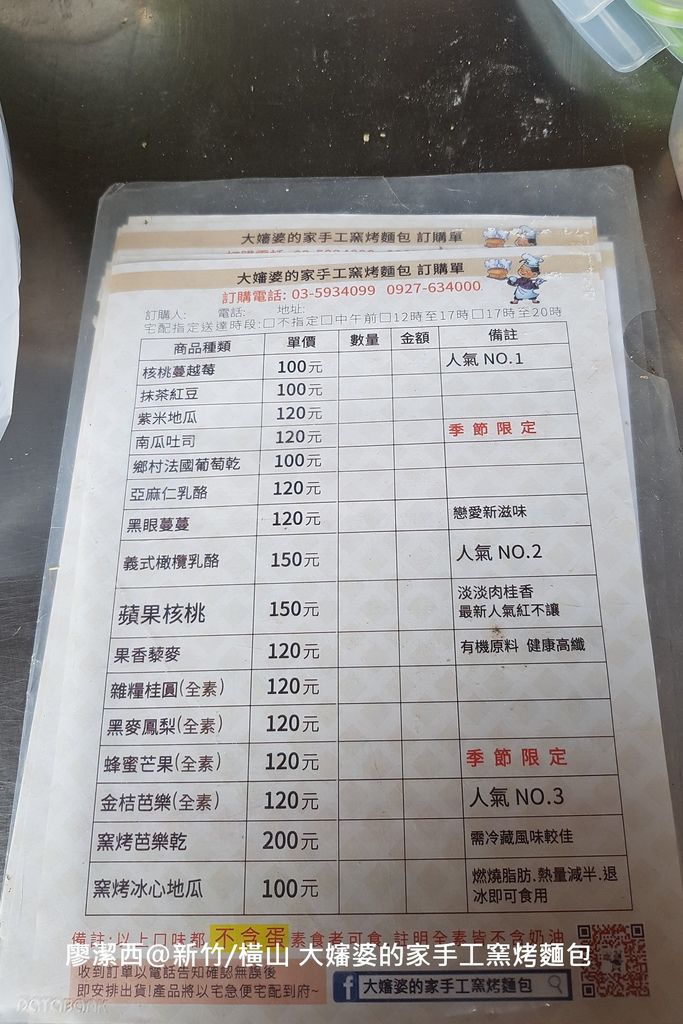 大嬸婆的家手工窯烤麵包 訂購單
大嬸婆的家手工窯烤麵包 訂購單
訂購電話: 03-5934099 0927-634000
訂購人: 電話: 地址:
宅配指定送達時段:□不指定□中午前□12時至17時□17時至20時
商品種類 單價 數量 金額 備註
核桃蔓越莓 100元 人氣 NO.1
抹茶紅豆 100元
紫米地瓜 120元
南瓜吐司 120元 季節限定
鄉村法國葡萄乾 100元
亞麻仁乳酪 120元
黑眼蔓蔓 120元 戀愛新滋味
義式橄欖乳酪 150元 人氣 NO.2
蘋果核桃 150元 淡淡肉桂香
最新人氣紅不讓
果香藜麥 120元 有機原料 健康高纖
雜糧桂圓(全素) 120元
黑麥鳳梨(全素) 120元
蜂蜜芒果(全素) 120元 季節限定
金桔芭樂(全素) 120元 人氣 NO.3
窯烤芭樂乾 200元 需冷藏風味較佳
窯烤冰心地瓜 100元 燃燒脂肪.熱量減半.退
冰即可食用
備註:以上口味都 不含蛋 素食者可食 註明全素皆不含奶油
廖潔西@新竹/橫山 大嬸婆的家手工窯烤麵包
收到訂單以電話告知確認無誤後
即安排出貨!產品將以宅急便宅配到府~
大嬸婆的家手工窯烤麵包
DATABANK